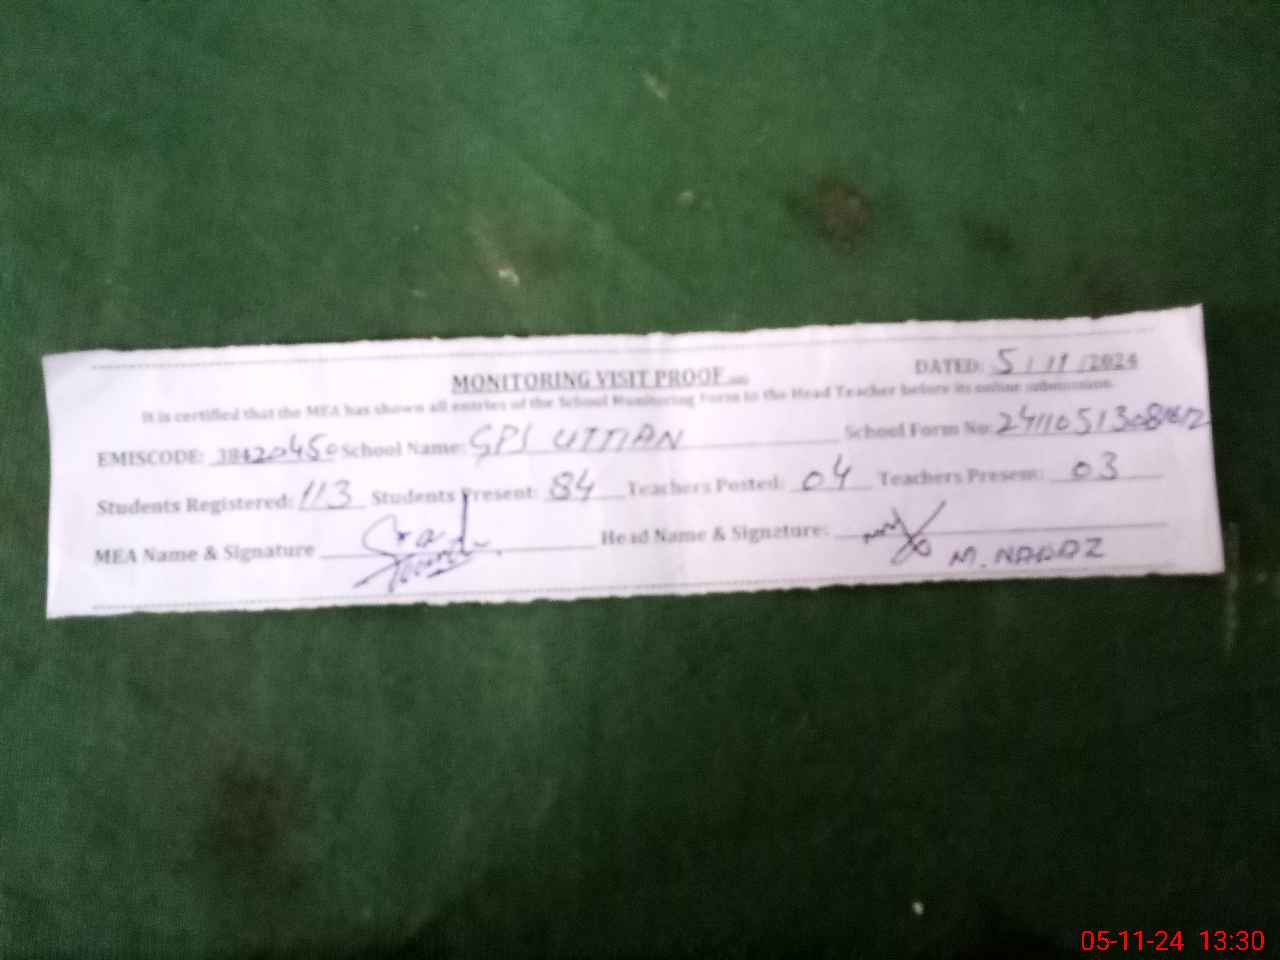 DATED: 5/11/2024
MONITORING VISIT PROOF
It is certified that the MEA has shown all entries of the School Monitoring Form to the Head Teacher before its online submission.
EMISCODE: 38420450 School Name: GPS UTTIAN School Form No:
Students Registered: 113 Students Present: 84 Teachers Posted: 04 Teachers Present: 03
MEA Name & Signature Head Name & Signature:
M. NAWAZ
05-11-24 13:30